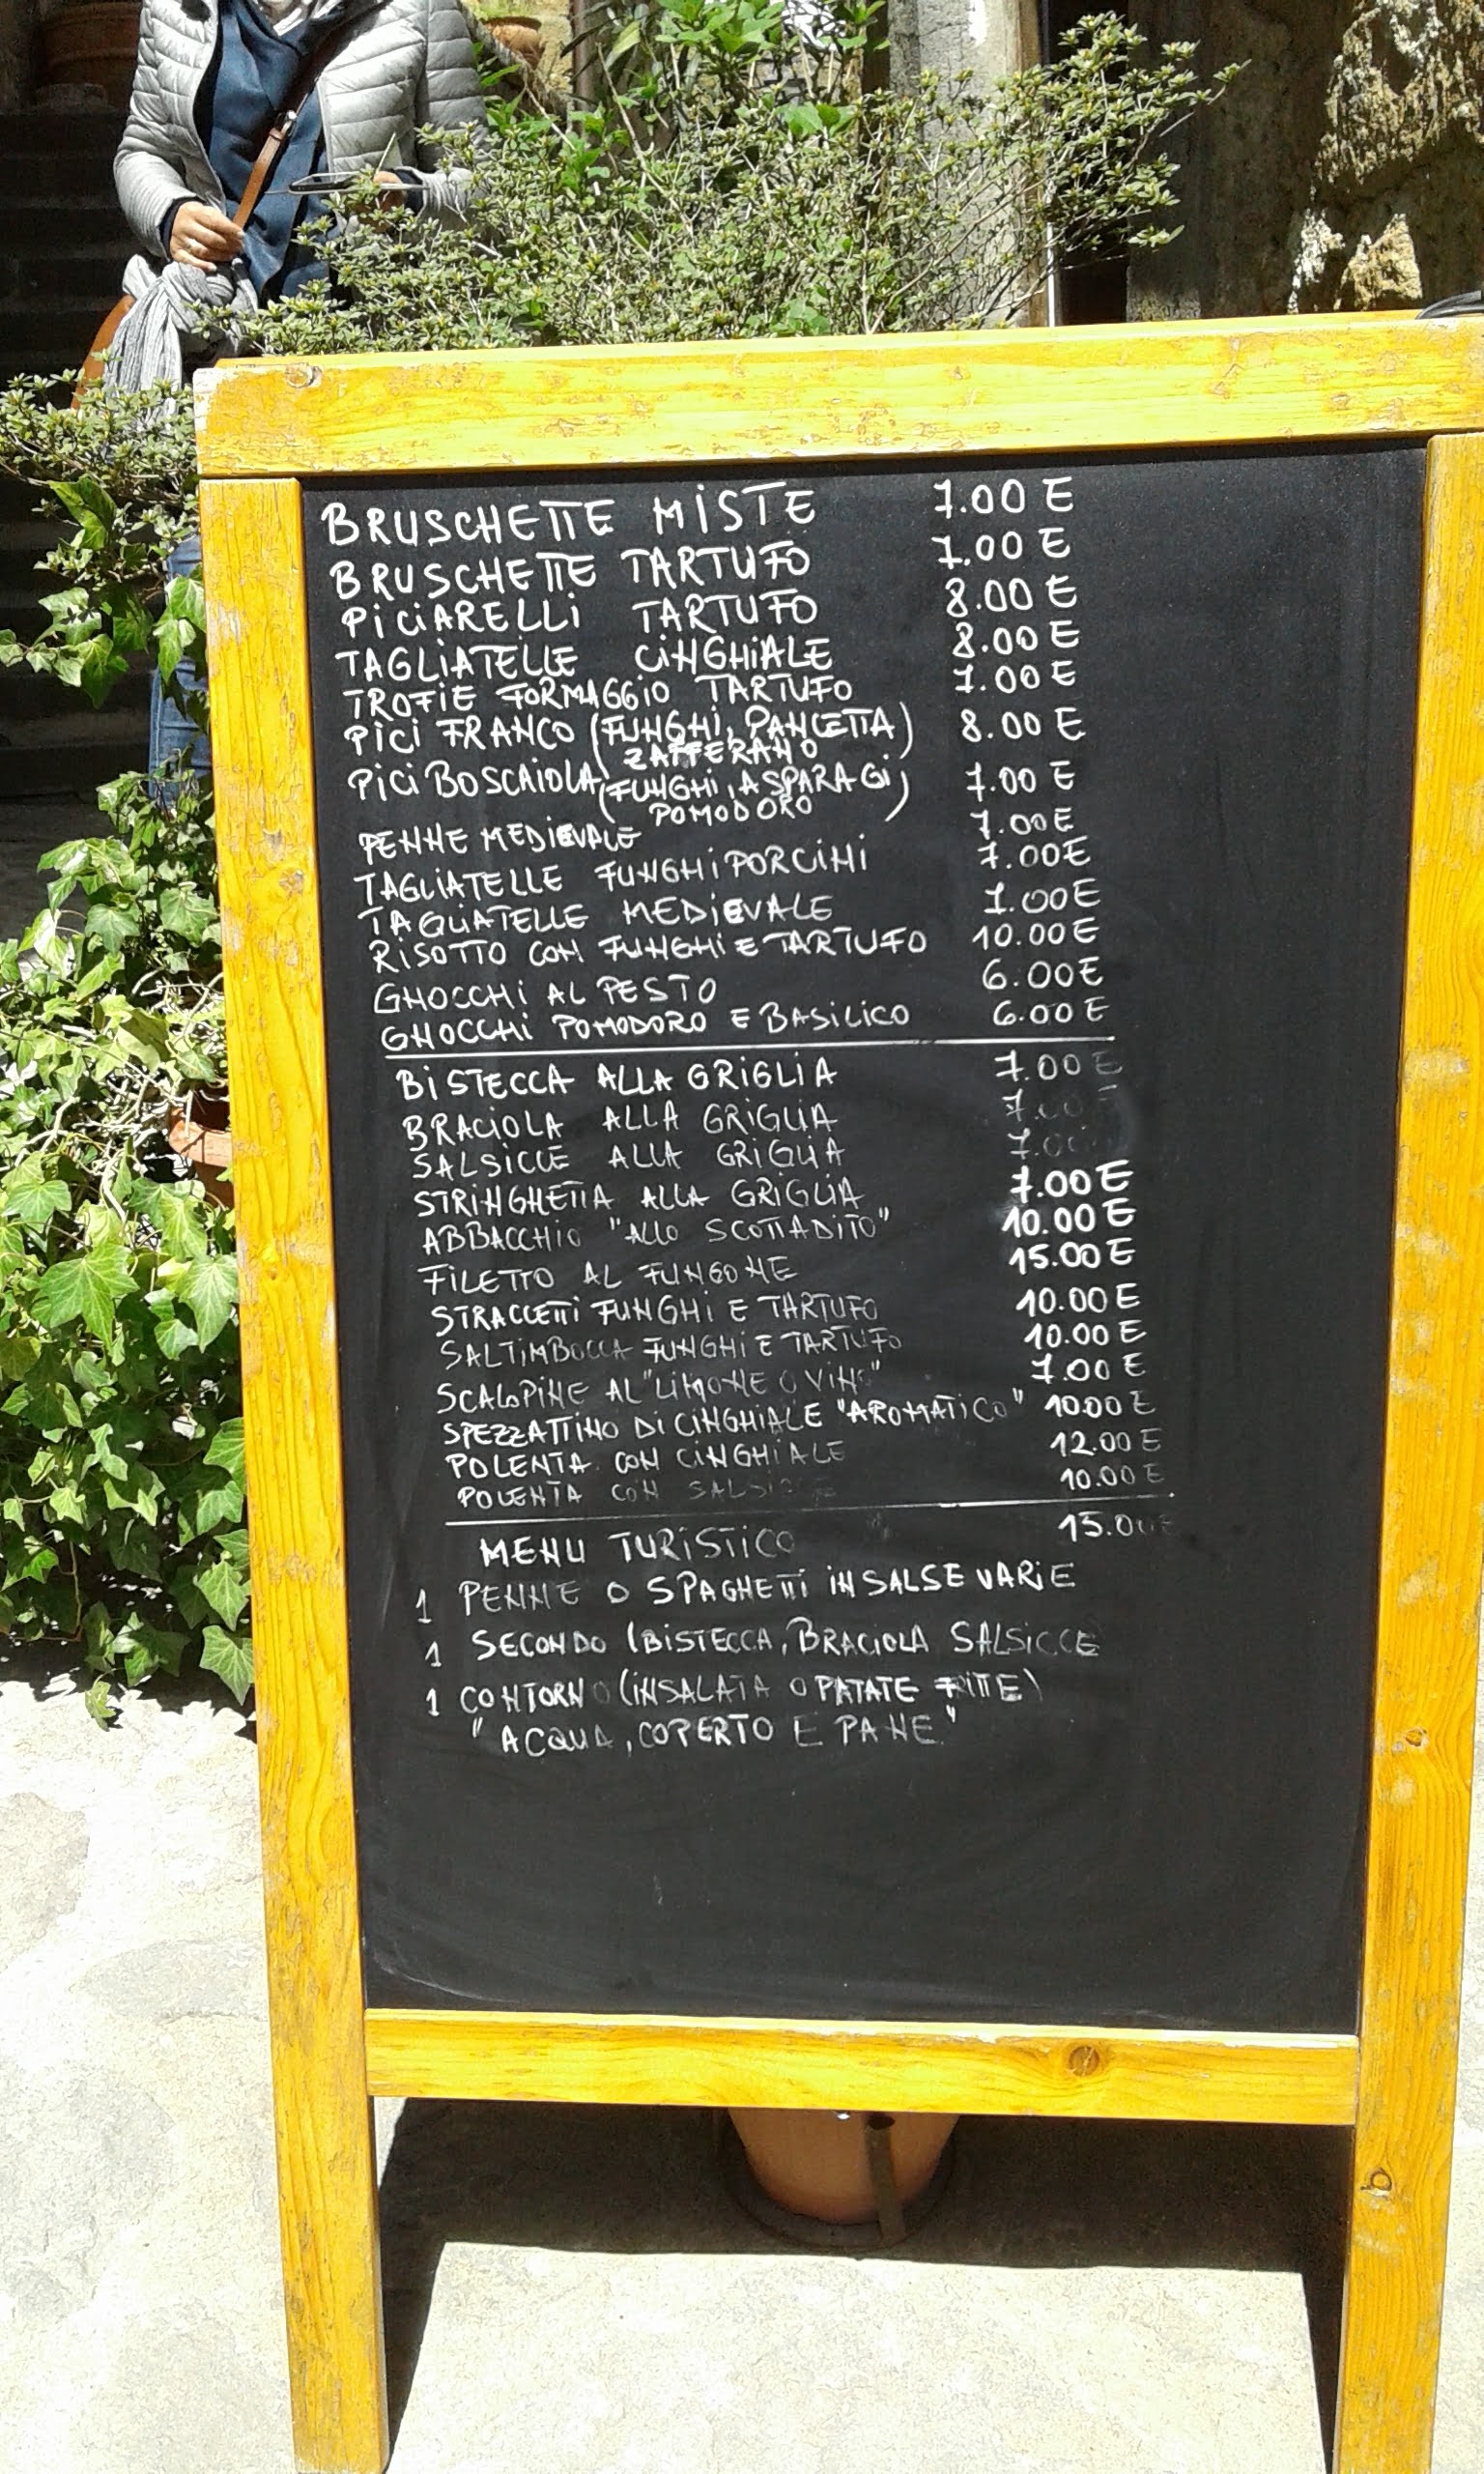 BRUSCHETTE MISTE 7.00 E
BRUSCHETTE TARTUFO 7.00 E
PICIARELLI TARTUFO 8.00 E
TAGLIATELLE CINGHIALE 8.00 E
TROFIE FORMAGGIO TARTUFO 7.00 E
PICI FRANCO (FUNGHI, PANCETTA) 8.00 E
ZAFFERANO
PICI BOSCAIOLA (FUNGHI, ASPARAGI) 7.00 E
POMODORO
PENNE MEDIEVALE 7.00 E
TAGLIATELLE FUNGHI PORCINI 7.00 E
TAGLIATELLE MEDIEVALE 7.00 E
RISOTTO CON FUNGHI E TARTUFO 10.00 E
GNOCCHI AL PESTO 6.00 E
GNOCCHI POMODORO E BASILICO 6.00 E
BISTECCA ALLA GRIGLIA 7.00 E
BRACIOLA ALLA GRIGLIA 7.00 E
SALSICCE ALLA GRIGLIA 7.00
STRINGHETTA ALLA GRIGLIA 7.00 E
ABBACCHIO "ALLO SCOTTADITO" 10.00 E
FILETTO AL FUNGONE 15.00 E
STRACCETTI FUNGHI E TARTUFO 10.00 E
SALTIMBOCCA FUNGHI E TARTUFO 10.00 E
SCALOPINE AL "LIMONE O VINO" 7.00 E
SPEZZATTINO DI CINGHIALE "AROMATICO" 10.00 E
POLENTA CON CINGHIALE 12.00 E
POLENTA CON SALSICCE 10.00 E
MENU TURISTICO 15.00 E
1 PENNE O SPAGHETTI IN SALSE VARIE
1 SECONDO (BISTECCA, BRACIOLA SALSICCE
1 CONTORNO (INSALATA O PATATE FRITTE)
"ACQUA, COPERTO E PANE"